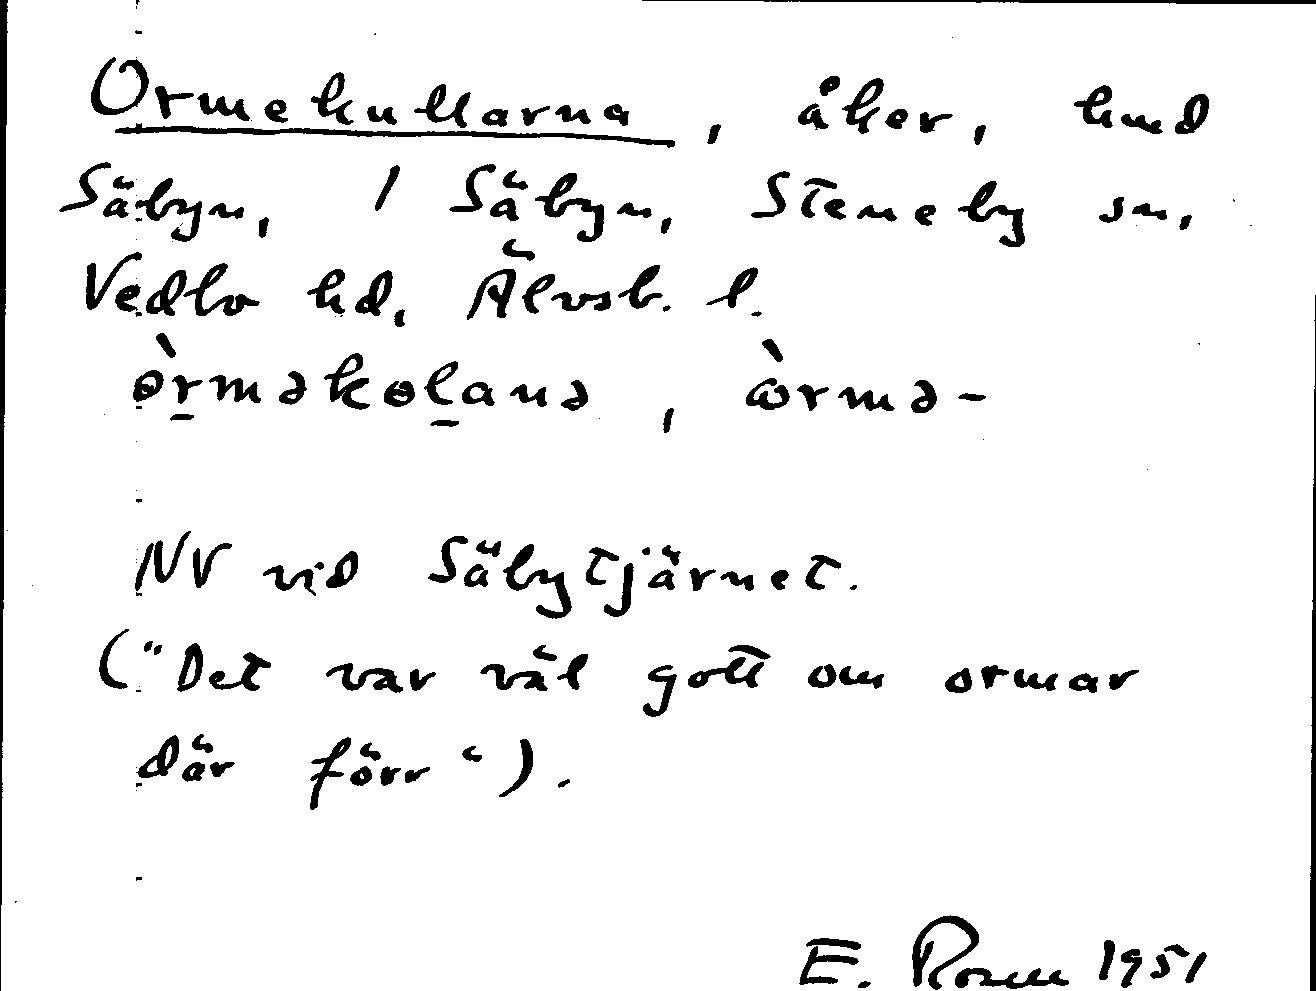 Ormekullarna, åker, hmd
Säbyn, / Säbyn, Steneby sn,
Vedbo hd, Älvsb. l.
ɵ̀r̠məkɵl̠anə, ὼrmə-
NV vid Säbytjärnet.
("Det var väl gott om ormar
där förr").
E. Rosen 1951